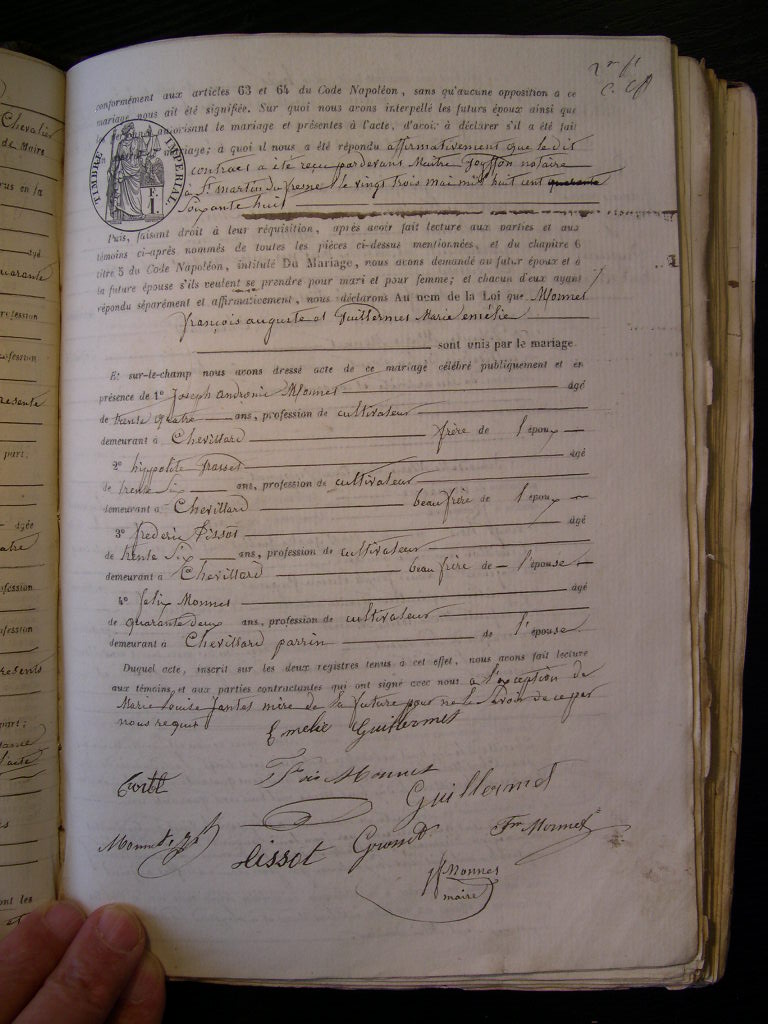 conformément aux articles 63 et 64 du Code Napoléon, sans qu'aucune opposition a ce
mariage nous ait été signifiée. Sur quoi nous avons interpellé les futurs époux ainsi que
autorisant le mariage et présentes à l'acte, d'avoir à déclarer s'il a été fait
mariage; à quoi il nous a été répondu affirmativement que le dit
contrat a été reçu pardevant Maitre Goyffon notaire
à St martin du fresne le vingt trois mai mil huit cent quarante
Soixante huit
TIMBRE IMPÉRIAL
Puis, faisant droit à leur réquisition, après avoir fait lecture aux parties et aux
témoins ci-après nommés de toutes les pièces ci-dessus mentionnées, et du chapitre 6
titre 5 du Code Napoléon, intitulé Du Mariage, nous avons demandé au futur époux et à
la future épouse s'ils veulent se prendre pour mari et pour femme; et chacun d'eux ayant
répondu séparément et affirmativement, nous déclarons Au nom de la Loi que Monnet
françois auguste et Guillermet Marie émélie
sont unis par le mariage
Et sur-le-champ nous avons dressé acte de ce mariage célébré publiquement et en
présence de 1° Joseph andronic Monnet âgé
de trente quatre ans, profession de cultivateur
demeurant à Chevillard frère de l'époux
2° hippolite âgé
de trente Six ans, profession de cultivateur
demeurant à Chevillard beau frère de l'époux
3° frederic Pissot âgé
de trente Six ans, profession de cultivateur
demeurant à Chevillard beau frère de l'épouse
4° felix Monnet âgé
de quarante deux ans, profession de cultivateur
demeurant à Chevillard parrin de l'épouse
Duquel acte, inscrit sur les deux registres tenus à cet effet, nous avons fait lecture
aux témoins et aux parties contractantes qui ont signé avec nous a l'exception de
Marie Louise mère de la future pour ne le Savoir de ce par
nous requit
Emelie Guillermet
fois Monnet
Guillermet
Monnet
Pissot
Fs Monnet
Monnet
maire